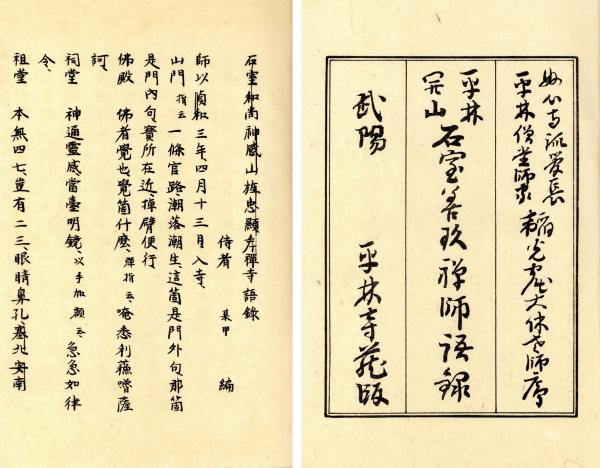 妙心寺派管長
平林僧堂師家 韜光窟大休老師序
平林
開山 石室善玖禅師語録
武陽 平林寺蔵版
石室和尚神感山旌忠顯孝禪寺語錄
侍者 某甲 編
師以貞和三年四月十三日入寺、
山門 指云 一條官路潮落潮生、這箇是門外句那箇
是門內句寶所在近、掉臂便行
佛殿 佛者覺也覺箇什麼、彈指云、唵悉利蘓嚕薩
訶、
祠堂 神通靈感當臺明鏡、以手加額云、急急如律
令、
祖堂 本無四七豈有二三、眼睛鼻孔塞北安南